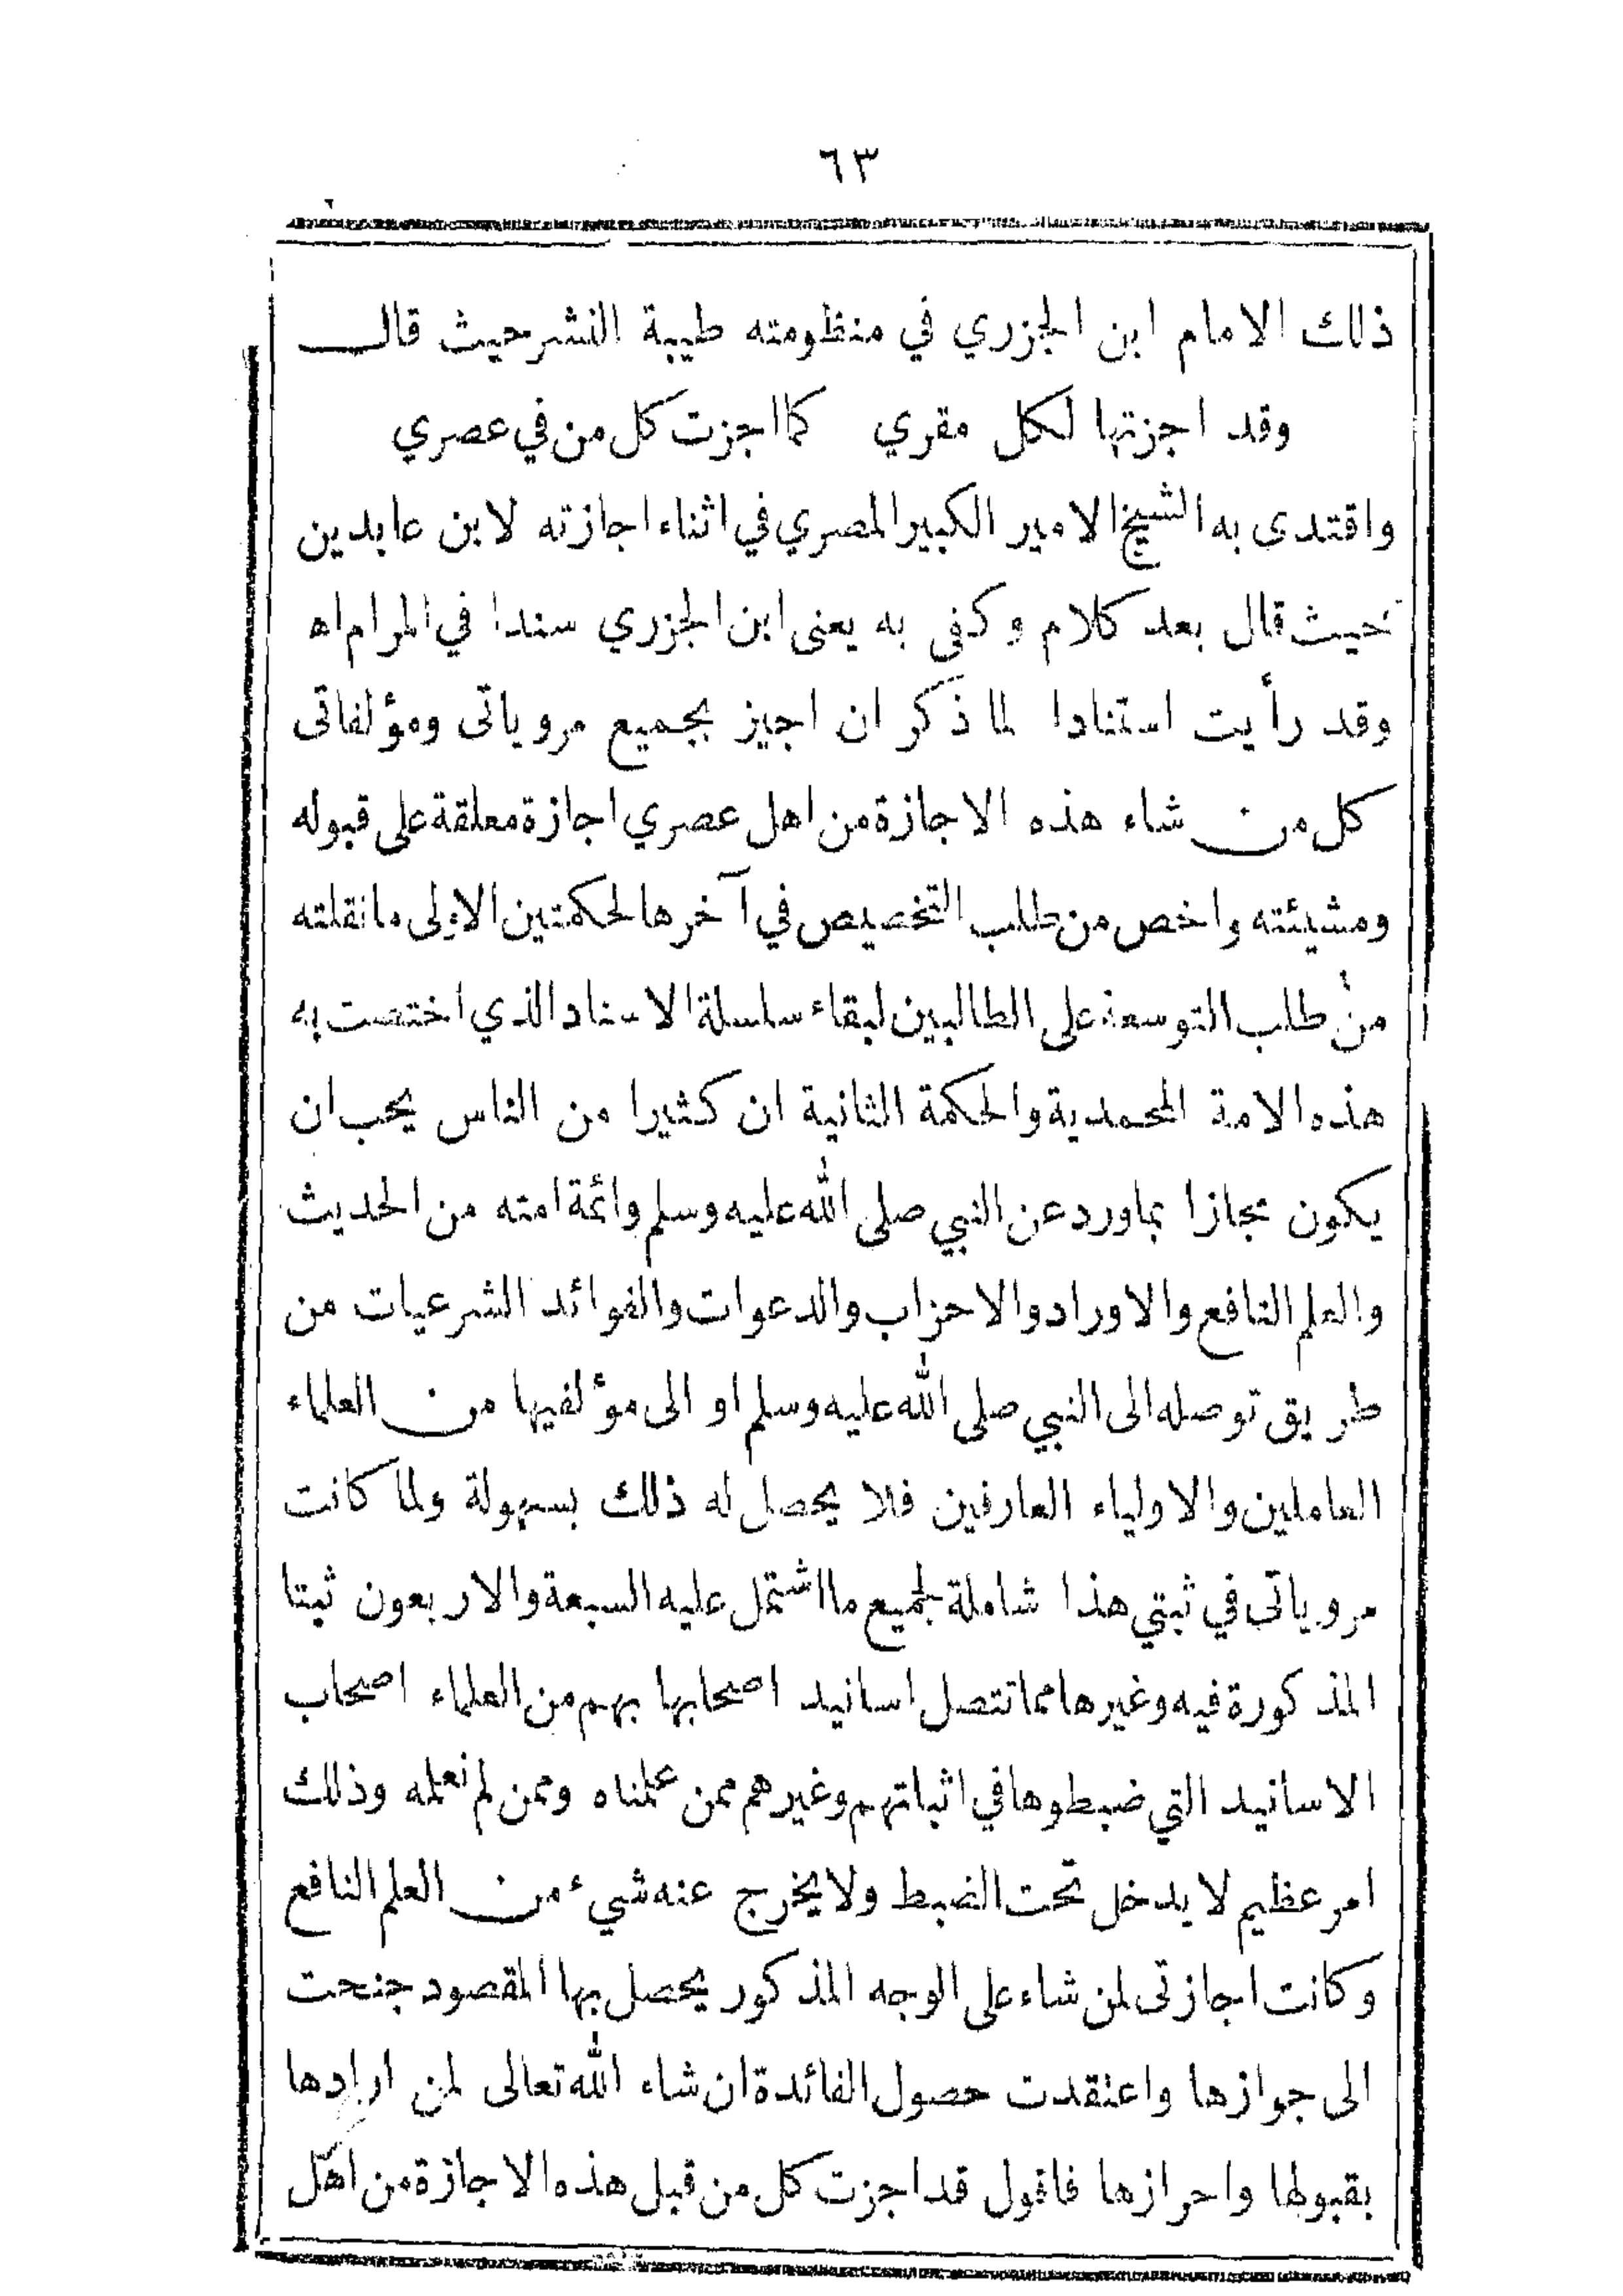 ٦٣
ذلك الامام ابن الجزري في منظومته طيبة النشر حيث قال
وقد اجزتها لكل مقري كما اجزت كل من في عصري
واقتدى به الشيخ الامير الكبير المصري في اثناء اجازته لابن عابدين
حيث قال بعد كلام وكفى به يعنى ابن الجزري سندا في المرام اه
وقد رأيت استنادا لما ذكر ان اجيز بجميع مروياتى ومؤلفاتى
كل من شاء هذه الاجازة من اهل عصري اجازة معلقة على قبوله
ومشيئته واخص من طلب التخصيص في آخرها لحكمتين الاولى ما نقلته
من طلب التوسعة على الطالبين لبقاء سلسلة الاسناد الذي اختصت به
هذه الامة المحمدية والحكمة الثانية ان كثيرا من الناس يحب ان
يكون مجازا بما ورد عن النبي صلى الله عليه وسلم وائمة امته من الحديث
والعلم النافع والاوراد والاحزاب والدعوات والفوائد الشرعيات من
طريق توصله الى النبي صلى الله عليه وسلم او الى مؤلفيها من العلماء
العاملين والاولياء العارفين فلا يحصل له ذلك بسهولة ولما كانت
مروياتى في ثبتي هذا شاملة لجميع ما اشتمل عليه السبعة والاربعون ثبتا
المذكورة فيه وغيرها مما تتصل اسانيد اصحابها بهم من العلماء اصحاب
الاسانيد التي ضبطوها في اثباتهم وغيرهم ممن علمناه وممن لم نعلمه وذلك
امر عظيم لا يدخل تحت الضبط ولا يخرج عنه شيء من العلم النافع
وكانت اجازتى لمن شاء على الوجه المذكور يحصل بها المقصود جنحت
الى جوازها واعتقدت حصول الفائدة ان شاء الله تعالى لمن ارادها
بقبولها واحرازها فاقول قد اجزت كل من قبل هذه الاجازة من اهل